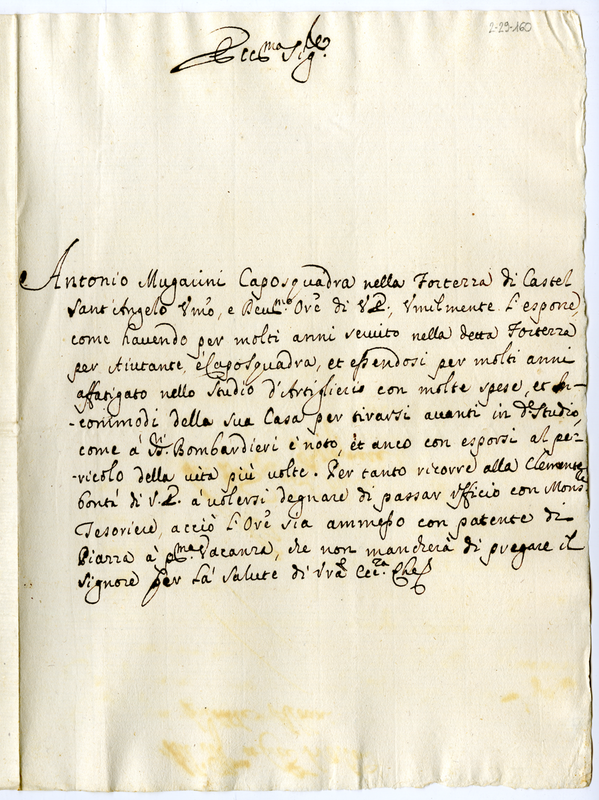 2-29-160
Ecc:ma Sig:re
Antonio Mugaini Caposquadra nella Fortezza di Castel
Sant'Angelo Vmo, e Dev:mo Ore di V.E., Vmilmente L'espone,
come havendo per molti anni servito nella detta Fortezza
per Aiutante, è Caposquadra, et essendosi per molti anni
affatigato nello studio d'Artiglieria con molte spese, et In-
-commodi della sua Casa per tirarsi avanti in do Studio,
come à Bombardieri è noto, et anco con esporsi al pe-
-ricolo della vita più volte. Per tanto ricorre alla Clemente
bontà di V.E. à volersi degnare di passar Vfficio con Mons:re
Tesoriere, acciò L'Ore sia ammesso con patente di
Piazza à pma Vacanza, che non mancherà di pregare il
Signore per La' Salute di Vra Ecc:za Che